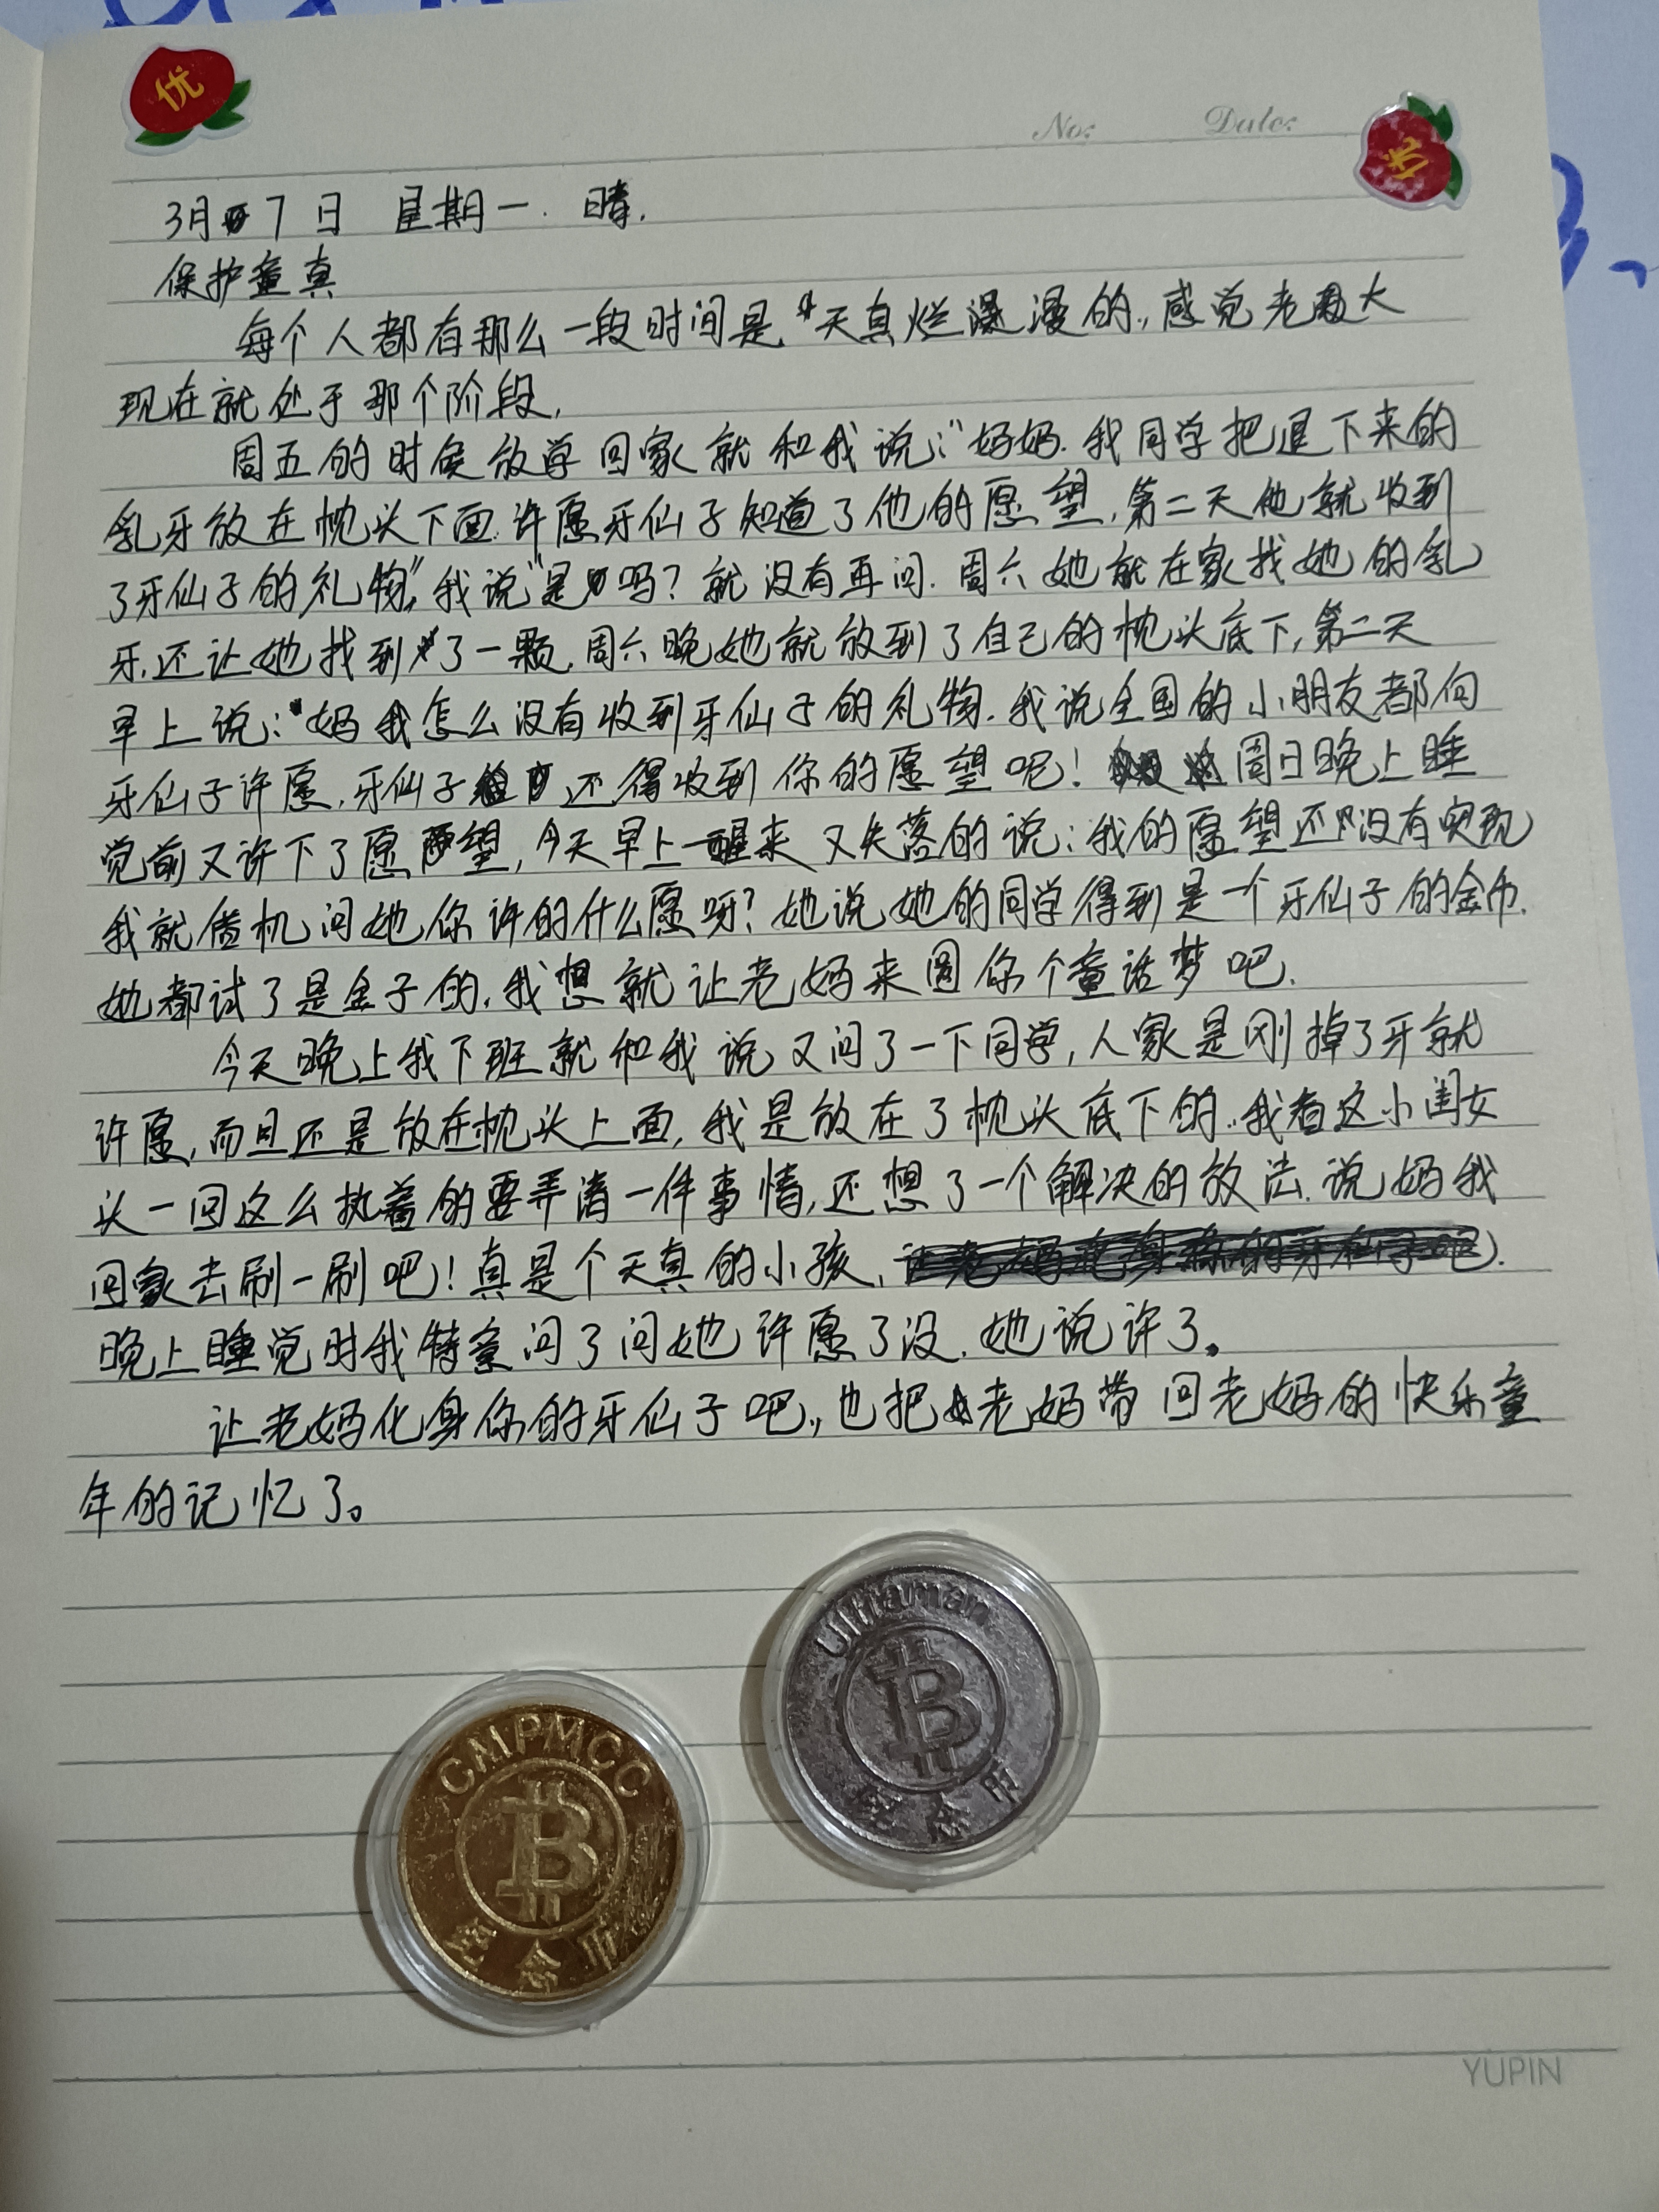 优
No: Date:
优
3月7日 星期一. 晴.
保护童真
每个人都有那么一段时间是“天真烂漫的,感觉老大
现在就处于那个阶段.
周五的时候放学回家就和我说:“妈妈.我同学把退下来的
乳牙放在枕头下面.许愿牙仙子知道了他的愿望,第二天他就收到
了牙仙子的礼物”,我说“是吗?就没有再问.周六她就在家找她的乳
牙.还让她找到了一颗.周六晚她就放到了自己的枕头底下,第二天
早上说:“妈我怎么没有收到牙仙子的礼物.我说全国的小朋友都向
牙仙子许愿.牙仙子还得收到你的愿望呢! 周日晚上睡
觉前又许下了愿望,今天早上一醒来又失落的说:我的愿望还没有实现
我就借机问她你许的什么愿呀?她说她的同学得到是一个牙仙子的金币.
她都试了是金子的.我想就让老妈来圆你个童话梦吧.
今天晚上我下班就和我说又问了一下同学,人家是刚掉了牙就
许愿,而且还是放在枕头上面,我是放在了枕头底下的..我看这小闺女
头一回这么执着的要弄清一件事情,还想了一个解决的放法.说妈我
回家去刷一刷吧!真是个天真的小孩,
晚上睡觉时我特意问了问她许愿了没.她说许了。
让老妈化身你的牙仙子吧,,也把老妈带回老妈的快乐童
年的记忆了。
Ultraman
B
纪念币
CMPMCC
B
纪念币
YUPIN